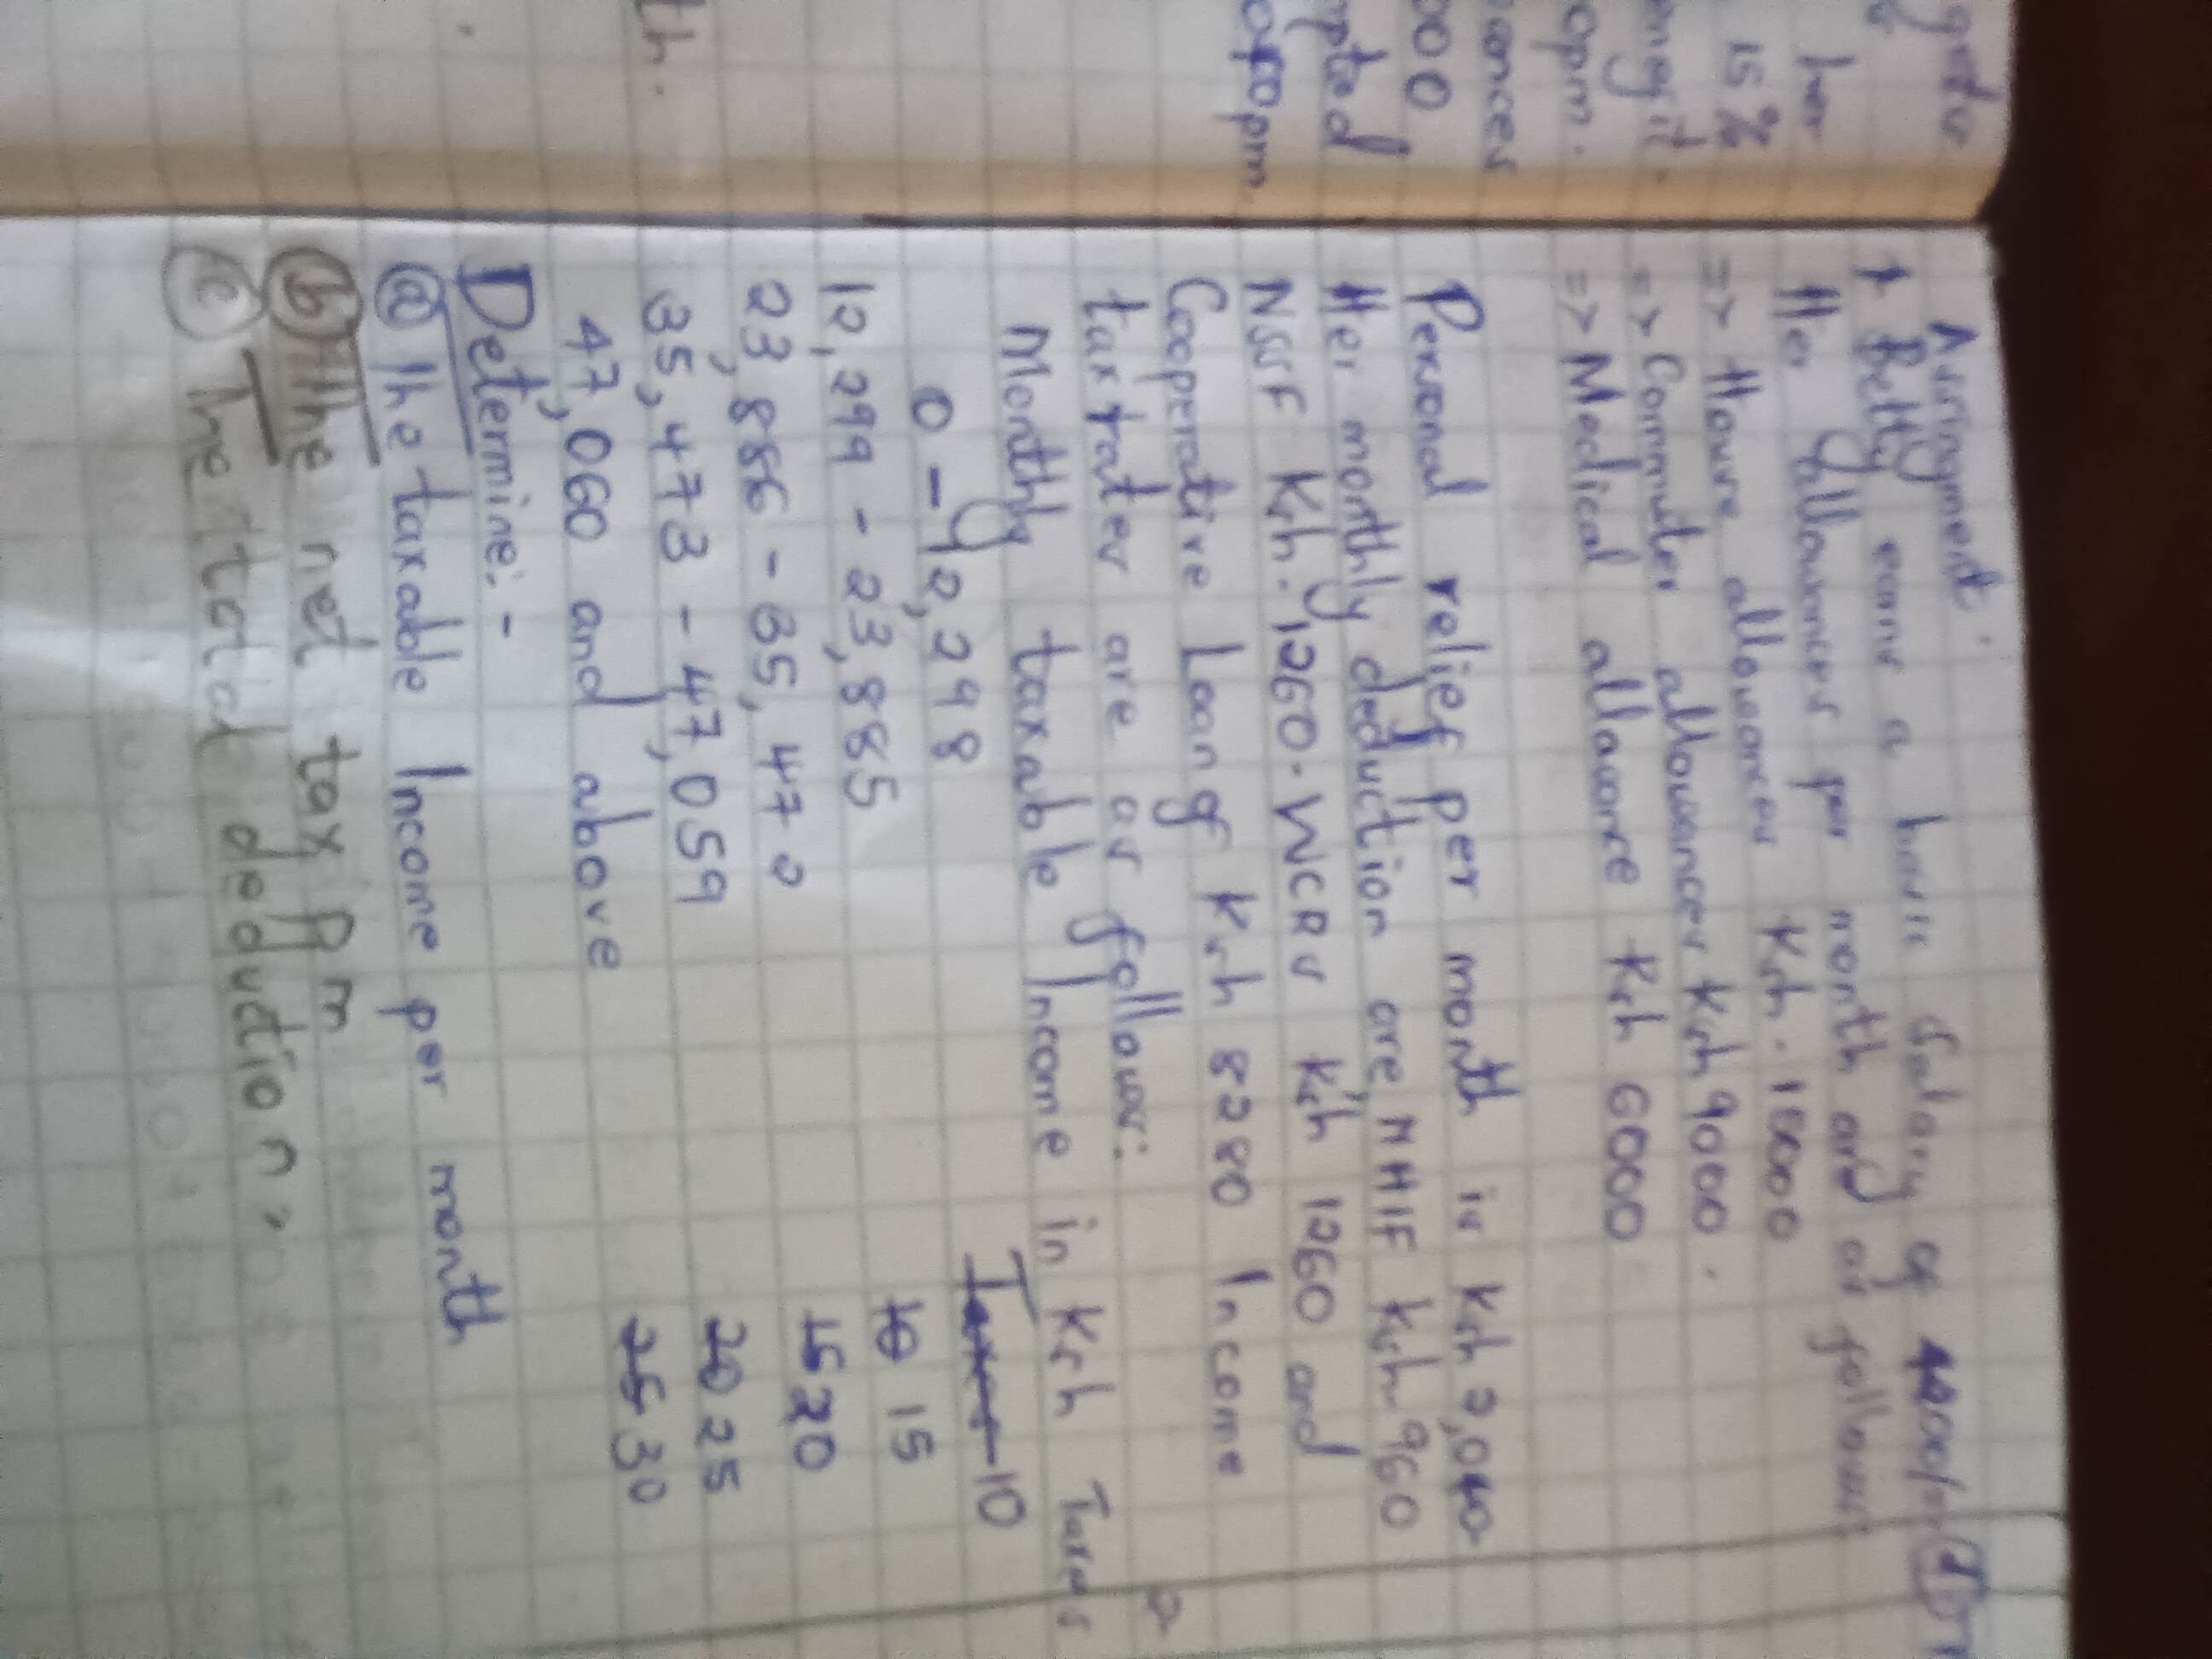 gedu
her
15%
opm.
ances
000
pted
opm
th.
Assignment.
Betty earns a basic salary of
Her allowances per month are as follows
=> House allowances Ksh. 18000
=> Commuter allowances Ksh 9000.
=> Medical allaance Ksh 6000
Personal relief per month is Ksh
Her monthly deduction are, NHIF Ksh 960
NSSF Ksh. 1260. WCPS Ksh 1260 and
Cooperative Loan of Ksh 8280 Income
tax rates are as follows:
Monthly taxable Income in Ksh Taxes
0 - 12,298 10
12,299 - 23,885 10 15
23,886 - 35,472 15 20
35,473 - 47,059 20 25
47,060 and above 25 30
Determine:-
(a) The taxable Income per month
(b) The net tax Pm
(c) The total deduction